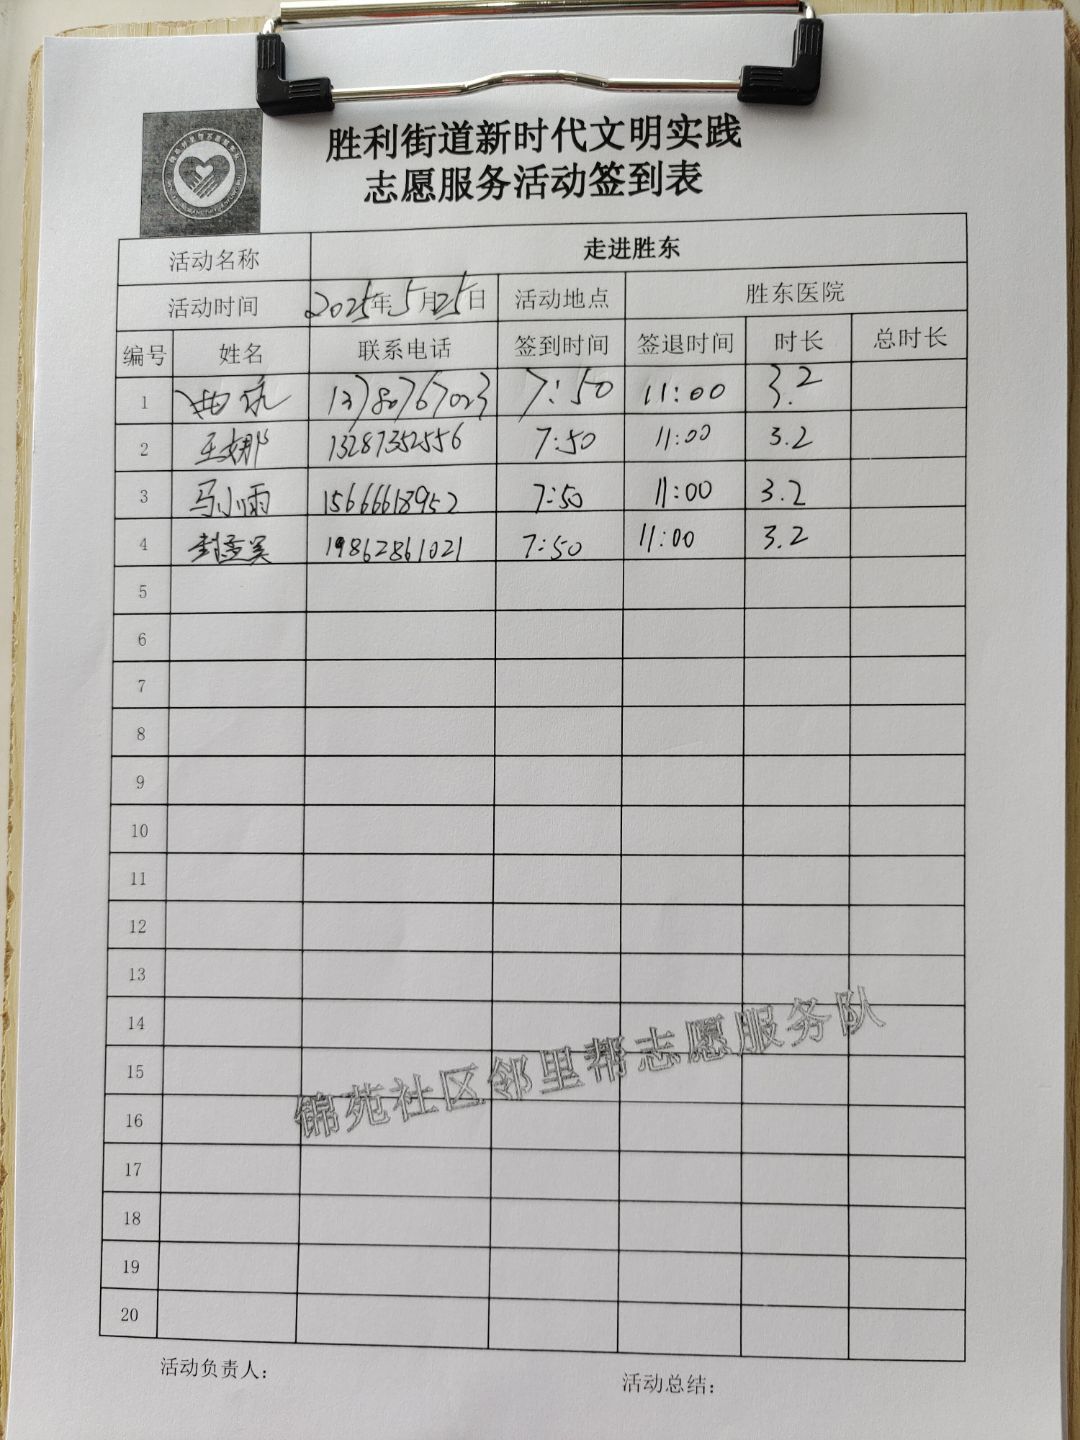 胜利街道新时代文明实践
志愿服务活动签到表
活动名称 走进胜东
活动时间 2025年5月25日 活动地点 胜东医院
编号 姓名 联系电话 签到时间 签退时间 时长 总时长
1 13780767023 7:50 11:00 3.2
2 王娜 13287352556 7:50 11:00 3.2
3 马小雨 15666618952 7:50 11:00 3.2
4 19862861021 7:50 11:00 3.2
5
6
7
8
9
10
11
12
13
14
15
16
17
18
19
20
锦苑社区邻里帮志愿服务队
活动负责人：
活动总结：